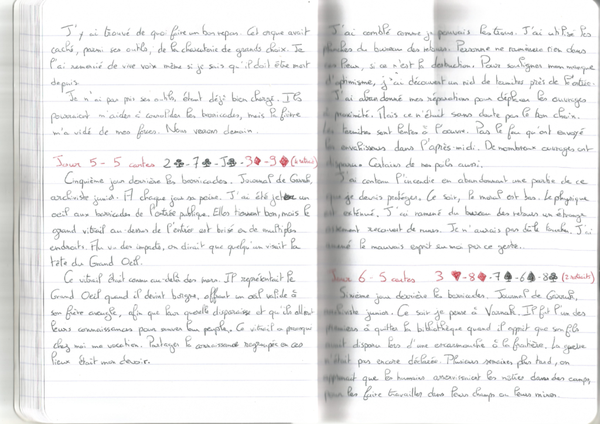 J'y ai trouvé de quoi faire un bon repas. Cet orque avait
caché, parmi ses outils, de la charcuterie de grands choix. Je
l'ai remercié de vive voix même si je sais qu'il doit être mort
depuis.
Je n'ai pas pris ses outils, étant déjà bien chargé. Ils
pourraient m'aider à consolider les barricades, mais la fièvre
m'a vidé de mes forces. Nous verrons demain.
Jour 5 - 5 cartes 2♣-7♣-J♣-3♦-9♦
Cinquième jour derrière les barricades. Journal de Garash,
archiviste junior. A chaque jour sa peine. J'ai été jeter un
oeil aux barricades de l'entrée publique. Elles tiennent bon, mais le
grand vitrail au dessus de l'entrée est brisé en de multiples
endroits. Au vu des impacts, on dirait que quelqu'un visait la
tête du Grand Oeil.
Ce vitrail était connu au-delà des mers. Il représentait le
Grand Oeil quand il devint borgne, offrant un oeil valide à
son frère aveugle, afin que leur querelle disparaisse et qu'ils allient
leurs connaissances pour sauver leur peuple. Ce vitrail a provoqué
chez moi ma vocation. Partager la connaissance regroupée en ces
lieux était mon devoir.
J'ai comblé comme je pouvais les trous. J'ai utilisé les
planches du bureau des retours. Personne ne ramènera rien dans
ce lieu, si ce n'est la destruction. Pour souligner mon manque
d'optimisme, j'ai découvert un nid de termites près de l'entrée.
J'ai abandonné mes réparations pour déplacer les ouvrages
à proximité. Mais ce n'était sans doute pas le bon choix.
Les termites sont lentes à l'oeuvre. Pas le feu qu'ont envoyé
les envahisseurs dans l'après-midi. De nombreux ouvrages ont
disparu. Certains de mes poils aussi.
J'ai contenu l'incendie en abandonnant une partie de ce
que je devais protéger. Ce soir, le moral est bas. Le physique
est exténué. J'ai ramené du bureau des retours un étrange
recouvert de runes. Je n'aurais pas dû le toucher. J'ai
ramené le mauvais esprit sur moi par ce geste.
Jour 6 - 5 cartes 3♥-8♦-7♠-6♠-8♠
Sixième jour derrière les barricades. Journal de Garash,
archiviste junior. Ce soir je pense à Il fut l'un des
premiers à quitter la bibliothèque quand il apprit que son fils
avait disparu lors d'une escarmouche à la frontière. La guerre
n'était pas encore déclarée. Plusieurs semaines plus tard, on
apprenait que les humains asservissaient les nôtres dans des camps,
pour les faire travailler dans leurs champs ou leurs mines.